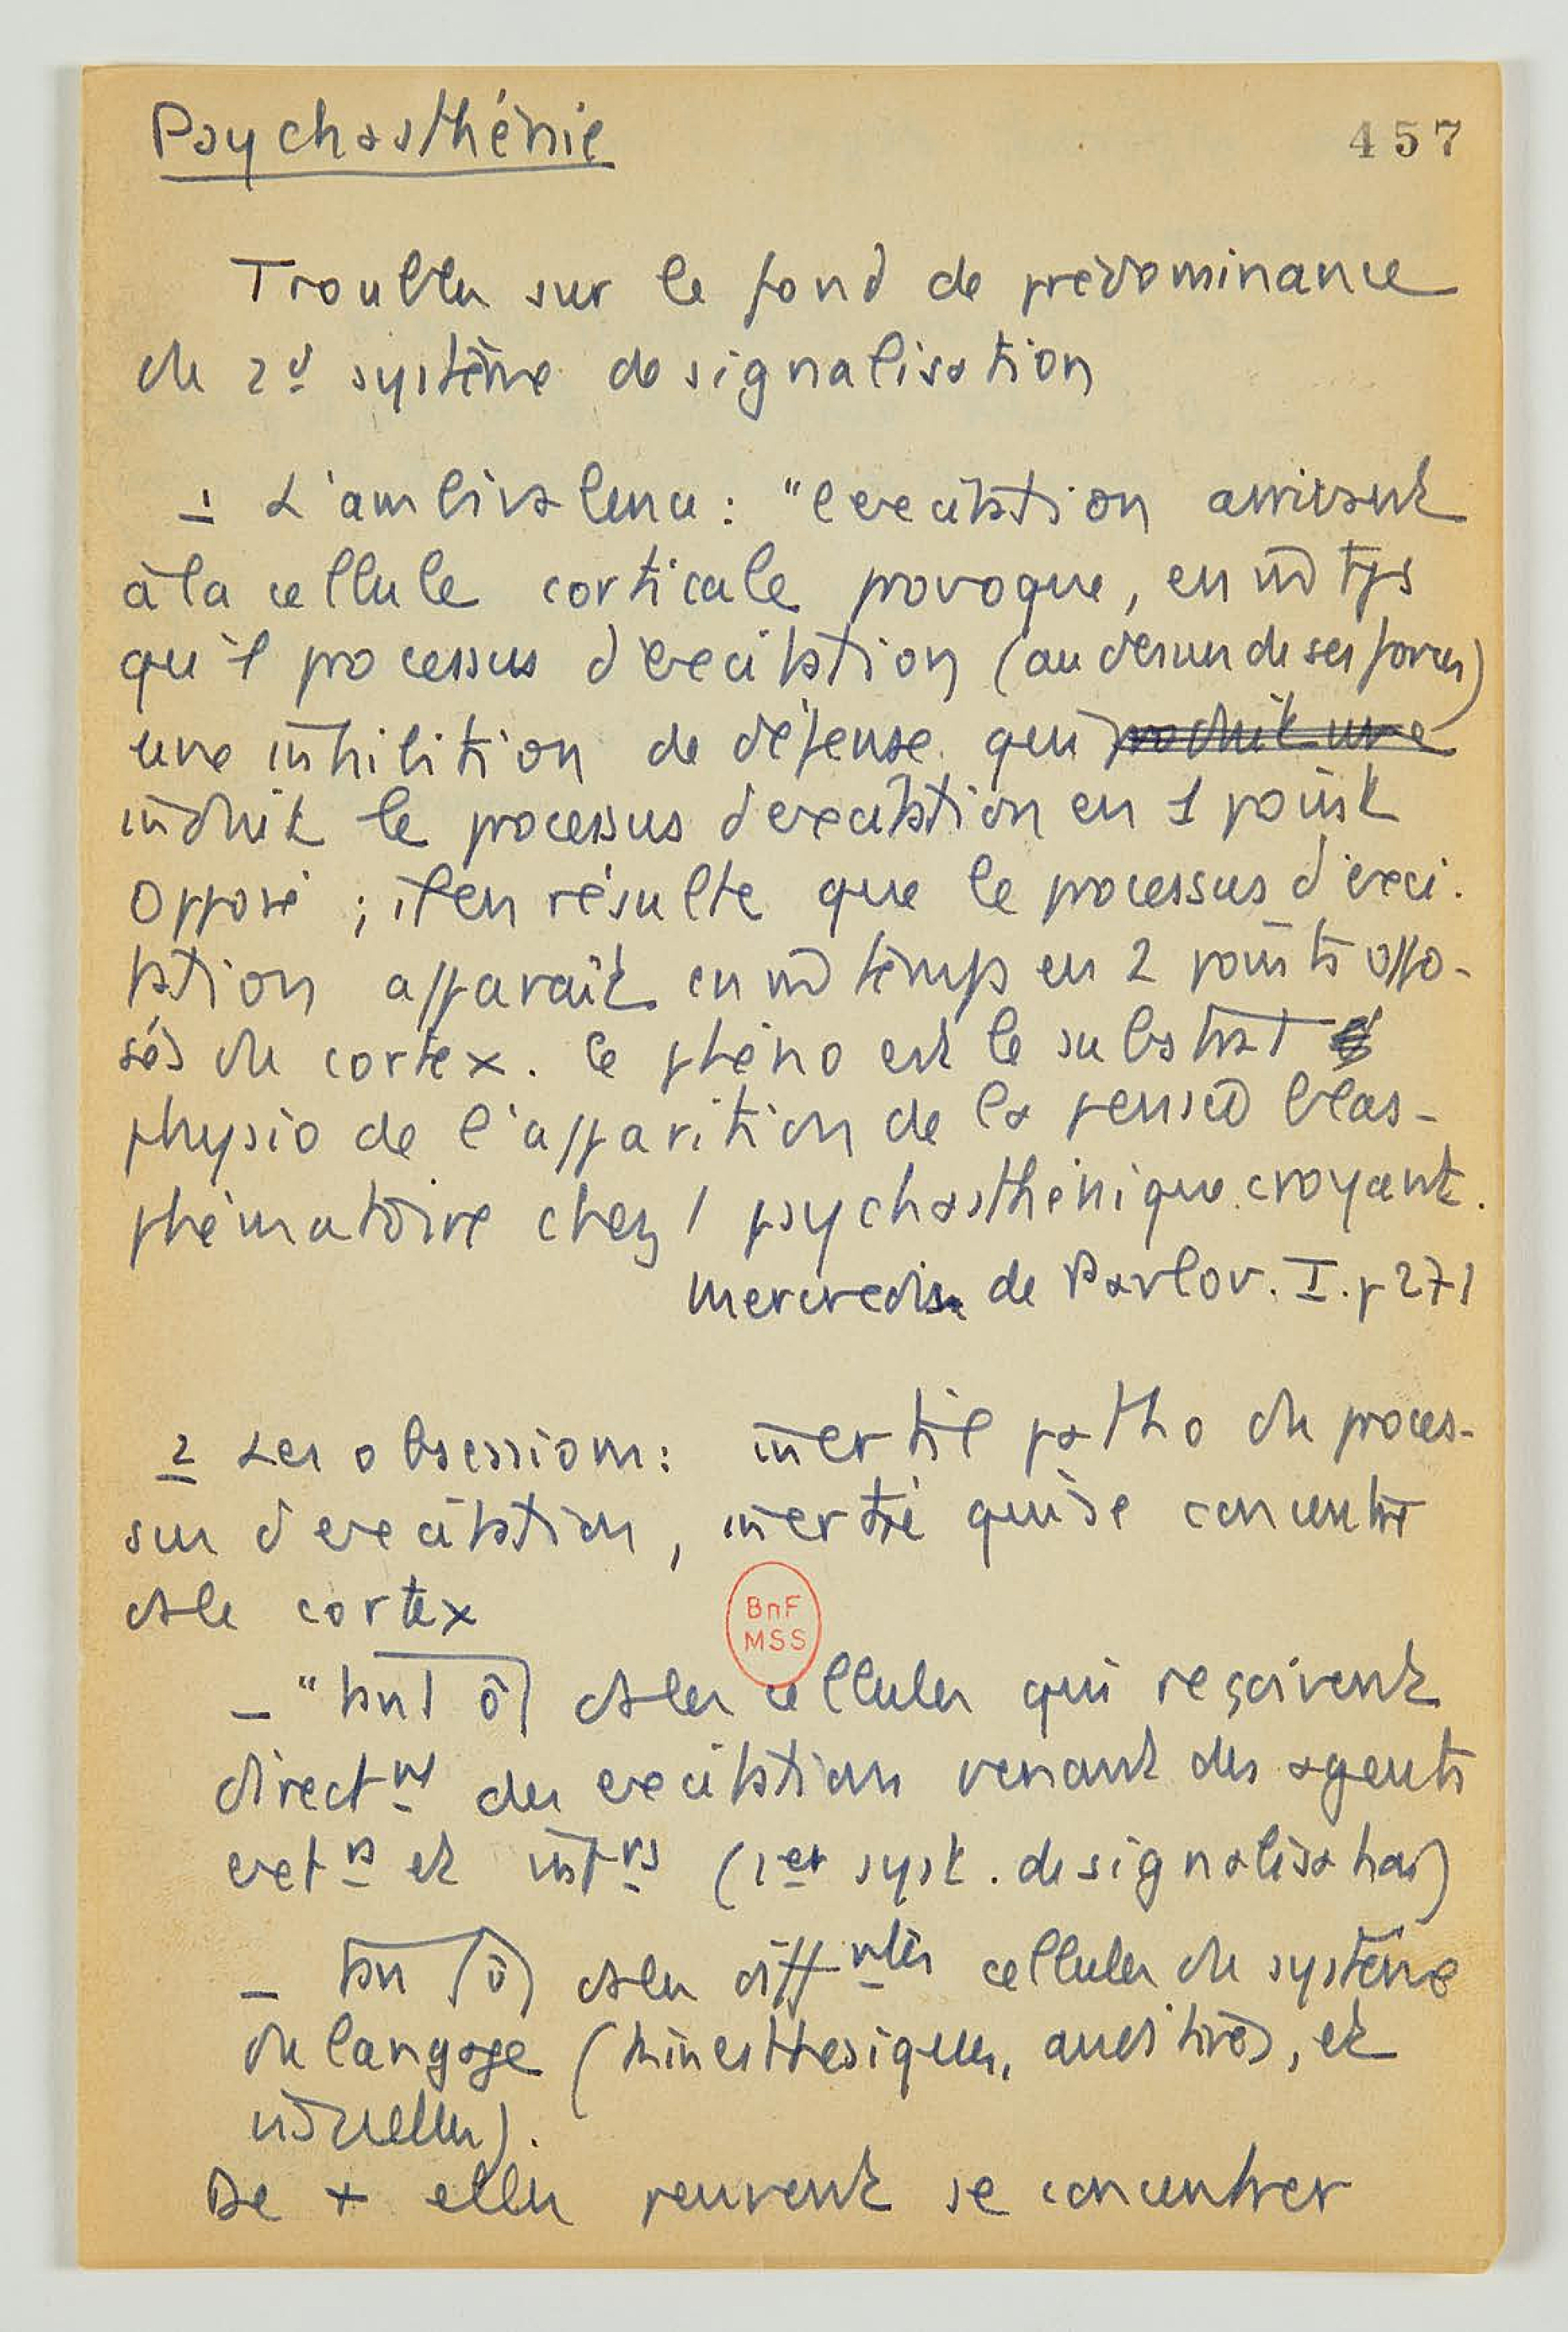 Psychasthénie
457
Troubles sur le fond de prédominance
du 2d système de signalisation
1 L'ambivalence : "l'excitation arrivant
à la cellule corticale provoque, en m̄ tps
qu'1 processus d'excitation (au dessus de ses forces)
une inhibition de défense qui produit une
induit le processus d'excitation en 1 point
opposé ; il en résulte que le processus d'exci-
tation apparaît en m̄ temps en 2 points oppo-
sés du cortex. Ce phéno est le substrat
physio de l'apparition de la pensée blas-
phématoire chez 1 psychasthénique croyant.
Mercredis de Pavlov. I. p 271
2 Les obsessions : inertie patho du proces-
sus d'excitation, inertie qui se concentre
ds le cortex
BnF
MSS
– " tantôt ds les cellules qui reçoivent
directmt des excitations venant des agents
extrs et intrs (1er syst. de signalisation)
– tantôt ds les diffntes cellules du système
du langage (kinesthésiques, auditives, et
visuelles).
De + elles peuvent se concentrer